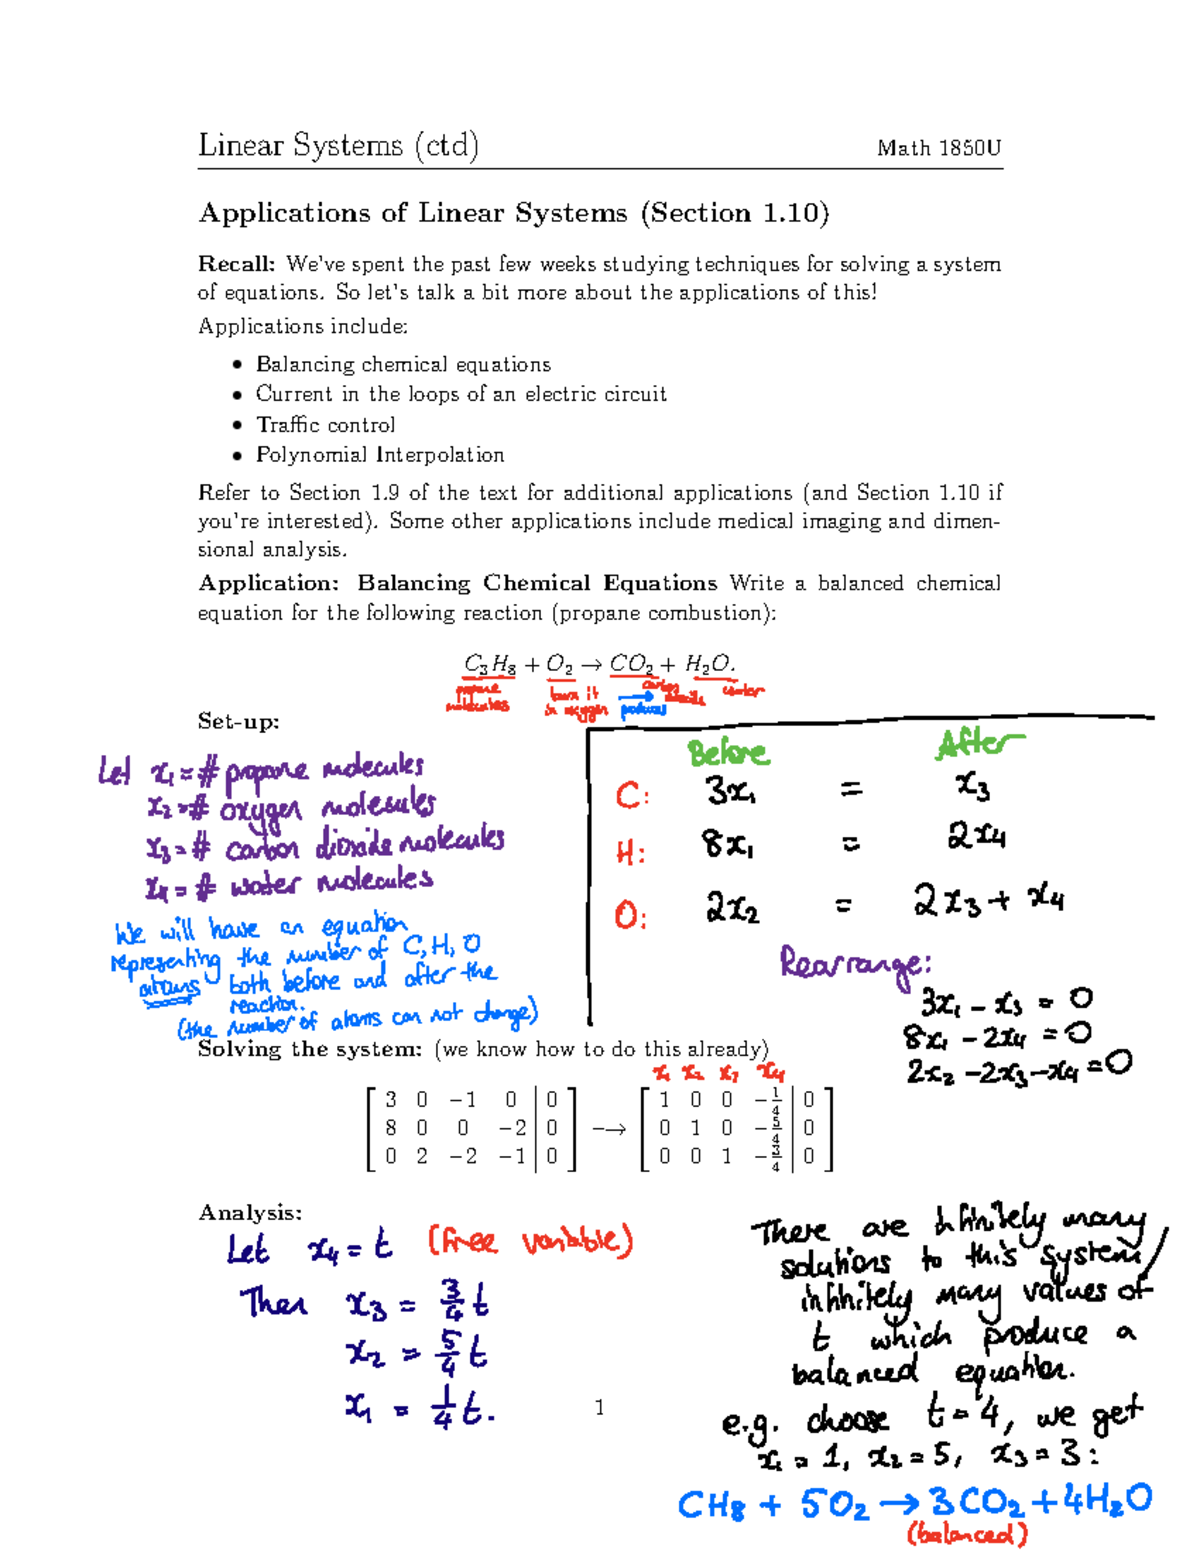 Linear Systems (ctd) Math 1850U
Applications of Linear Systems (Section 1.10)
Recall: We've spent the past few weeks studying techniques for solving a system
of equations. So let's talk a bit more about the applications of this!
Applications include:
• Balancing chemical equations
• Current in the loops of an electric circuit
• Traffic control
• Polynomial Interpolation
Refer to Section 1.9 of the text for additional applications (and Section 1.10 if
you're interested). Some other applications include medical imaging and dimen-
sional analysis.
Application: Balancing Chemical Equations Write a balanced chemical
equation for the following reaction (propane combustion):
C₃H₈ + O₂ → CO₂ + H₂O.
propane molecules
burn it in oxygen
→ produces
carbon dioxide
water
Set-up:
Let x₁ = # propane molecules
x₂ = # oxygen molecules
x₃ = # carbon dioxide molecules
x₄ = # water molecules
We will have an equation
representing the number of C, H, O
atoms both before and after the
reaction.
(the number of atoms can not change)
Before After
C: 3x₁ = x₃
H: 8x₁ = 2x₄
O: 2x₂ = 2x₃ + x₄
Rearrange:
3x₁ - x₃ = 0
8x₁ - 2x₄ = 0
2x₂ - 2x₃ - x₄ = 0
Solving the system: (we know how to do this already)
x₁ x₂ x₃ x₄
[ 3 0 −1 0 | 0 ] [ 1 0 0 −1/4 | 0 ]
[ 8 0 0 −2 | 0 ] −→ [ 0 1 0 −5/4 | 0 ]
[ 0 2 −2 −1 | 0 ] [ 0 0 1 −3/4 | 0 ]
Analysis:
Let x₄ = t (free variable)
Then x₃ = 3/4 t
x₂ = 5/4 t
x₁ = 1/4 t.
There are infinitely many
solutions to this system,
infinitely many values of
t which produce a
balanced equation.
e.g. choose t = 4, we get
x₁ = 1, x₂ = 5, x₃ = 3:
CH₈ + 5O₂ → 3CO₂ + 4H₂O
(balanced)
1